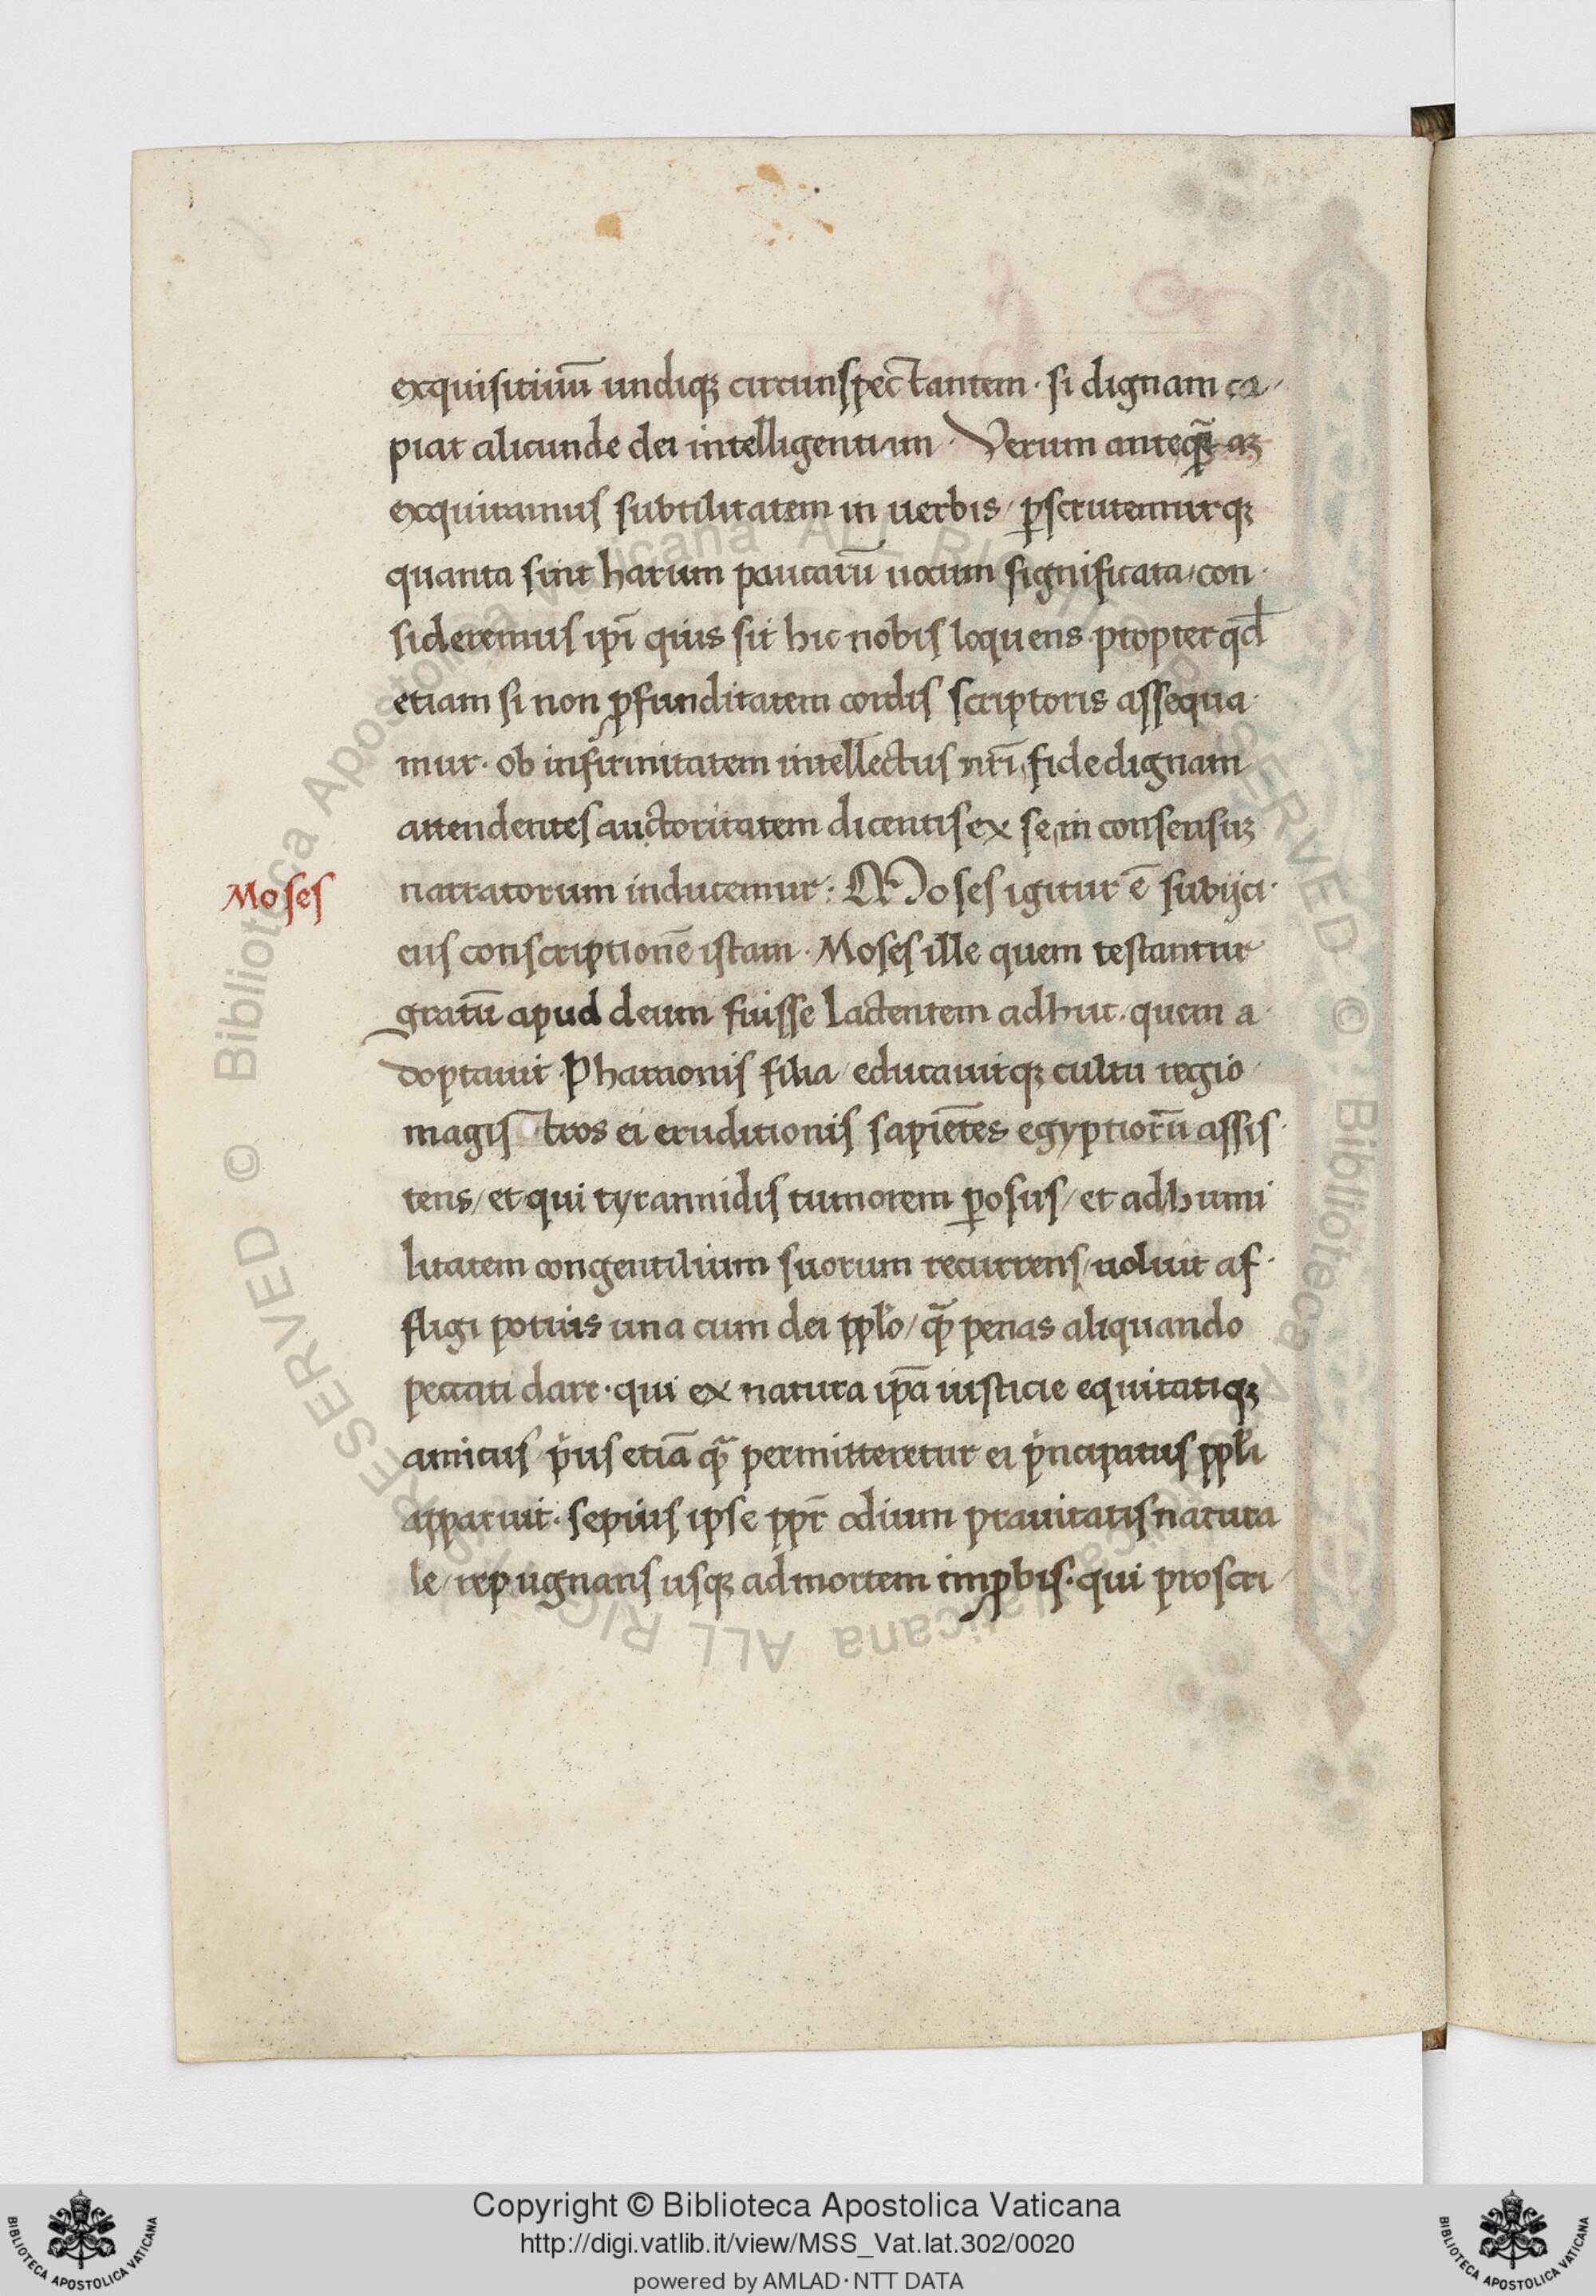 exquisitiuū undiqꝫ circunspectantem · si dignam ca-
piat alicunde dei intelligentiam · Verum anteqꝫ̄
exquiramus subtilitatem in uerbis / ꝑscrutemurqꝫ
quanta sint harum paucarū uocum significata / con-
sideremus ip̄i quis sit hic nobis loquens · propter qd̄
etiam si non ꝓfunditatem cordis scriptoris assequa-
mur · ob infirmitatem intellectus nr̄i, fide dignam
attendentes auctoritatem dicentis ex se, in consensuꝫ
Moses
narratorum inducemur : Moses igitur ē subijci-
eus conscriptionē istam · Moses ille quem testantur
gratū apud deum fuisse lactentem adhuc · quem a-
doptauit Pharaonis filia / educauitqꝫ cultu regio ·
magistros ei eruditionis sapiētes egyptiorū assis-
tens / et qui tyrannidis tumorem ꝑosus / et ad humi
litatem congentilium suorum recurrens / uoluit af-
fligi potius una cum dei pplo / qꝫ̄ penas aliquando
peccati dare · qui ex natura ip̄a iusticie equitatiqꝫ
amicus pius etiā qꝫ̄ permitteretur ei pincipatus ppli
apparuit · sepius ipse ppr̄ odium prauitatis natura
le / repugnans usqꝫ ad mortem imꝓbis · qui proscri-
Copyright © Biblioteca Apostolica Vaticana
http://digi.vatlib.it/view/MSS_Vat.lat.302/0020
powered by AMLAD · NTT DATA
BIBLIOTECA APOSTOLICA VATICANA
BIBLIOTECA APOSTOLICA VATICANA
© Biblioteca Apostolica Vaticana ALL RIGHTS RESERVED © Biblioteca Apostolica Vaticana ALL RIGHTS RESERVED